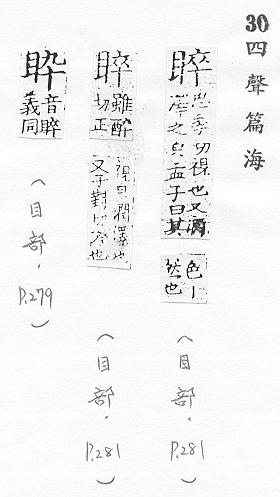 30四聲篇海
睟
思季切視也又潤
澤之皃孟子曰其
色丨
然也
(目部.P.281)
睟
雖醉
切正
又子對切
(目部.P.281)
音睟
義同
(目部.P.279)